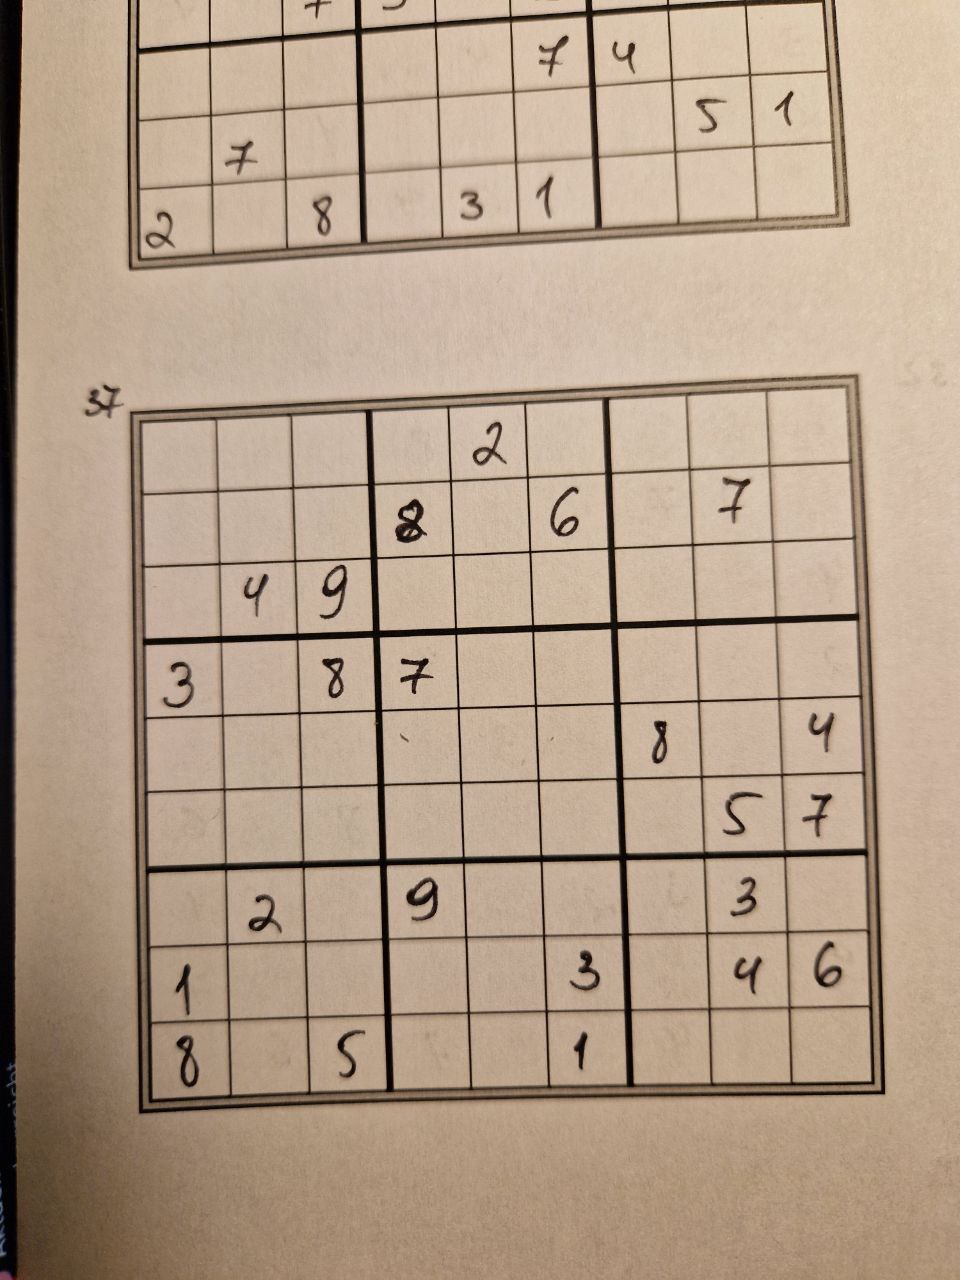 7 4
7 5 1
2 8 3 1
37
2
8 6 7
4 9
3 8 7
8 4
5 7
2 9 3
1 3 4 6
8 5 1